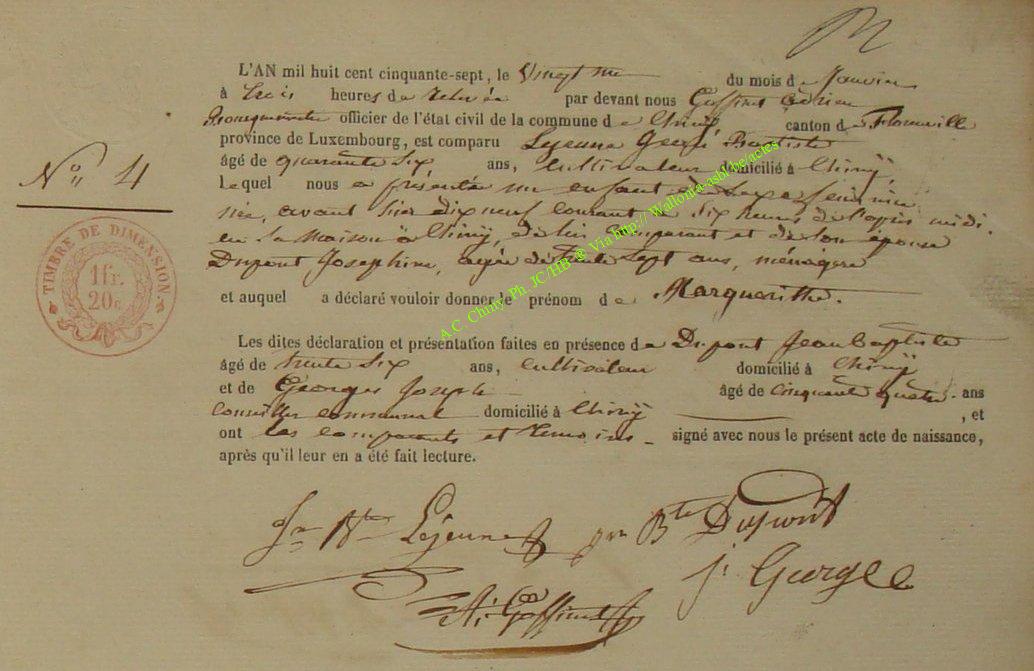 L'AN mil huit cent cinquante-sept, le Vingt un du mois de Janvier
à trois heures de relevée par devant nous Goffinet Adrien
Bourgmestre officier de l'état civil de la commune de Chiny, canton de Florenville
province de Luxembourg, est comparu Lejeune Jean Baptiste
âgé de quarante Six ans, Cultivateur domicilié à Chiny,
Lequel nous a présenté un enfant du Sexe féminin
née, avant hier dix neuf courant à Six heures de l'après midi.
en Sa Maison à Chiny, de lui Comparant et de Son épouse
Dupont Josephine, agée de trente Sept ans, ménagere
et auquel a déclaré vouloir donner le prénom de Marguerithe.
Les dites déclaration et présentation faites en présence de Dupont Jean baptiste
âgé de trente Six ans, Cultivateur domicilié à Chiny
et de Georges Joseph âgé de Cinquante quatre ans
Conseiller communal domicilié à Chiny , et
ont les comparants et temoins signé avec nous le présent acte de naissance,
après qu'il leur en a été fait lecture.
No 4
TIMBRE DE DIMENSION.
1fr.
20c
A.C. Chiny Ph. JC/HB @ Via http:// Wallonia-asbl.be/actes
Jn Bte Lejeune Jn Bte Dupont
J. George
A. Goffinet